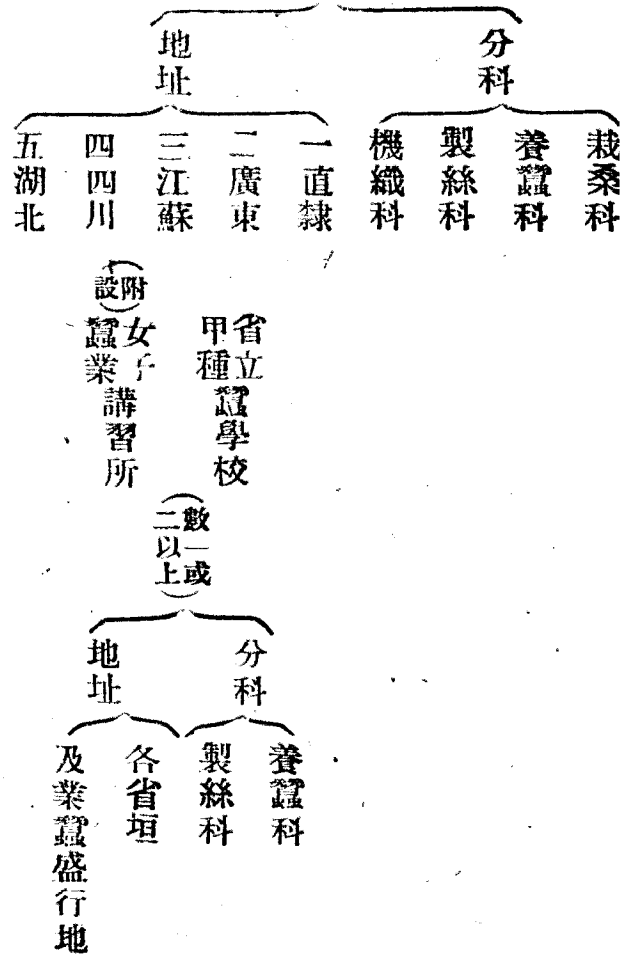 分科
栽桑科
養蠶科
製絲科
機織科
地址
一直隸
二廣東
三江蘇
四四川
五湖北
省立
甲種
蠶學校
(附設)
女子
蠶業
講習所
(數一或
二以上)
分科
養蠶科
製絲科
地址
各省垣
及業蠶盛行地